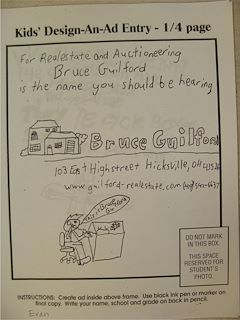 Kids' Design-An-Ad Entry - 1/4 page
For Realestate and Auctioneering
Bruce Guilford
is the name you should be hearing
Bruce Guilford
103 East Highstreet Hicksville, OH
www.guilford-realestate.com
This is Bruce
DO NOT MARK
IN THIS BOX.
THIS SPACE
RESERVED FOR
STUDENT'S
PHOTO.
INSTRUCTIONS: Create ad inside above frame. Use black ink pen or marker on
final copy. Write your name, school and grade on back in pencil.
Evan